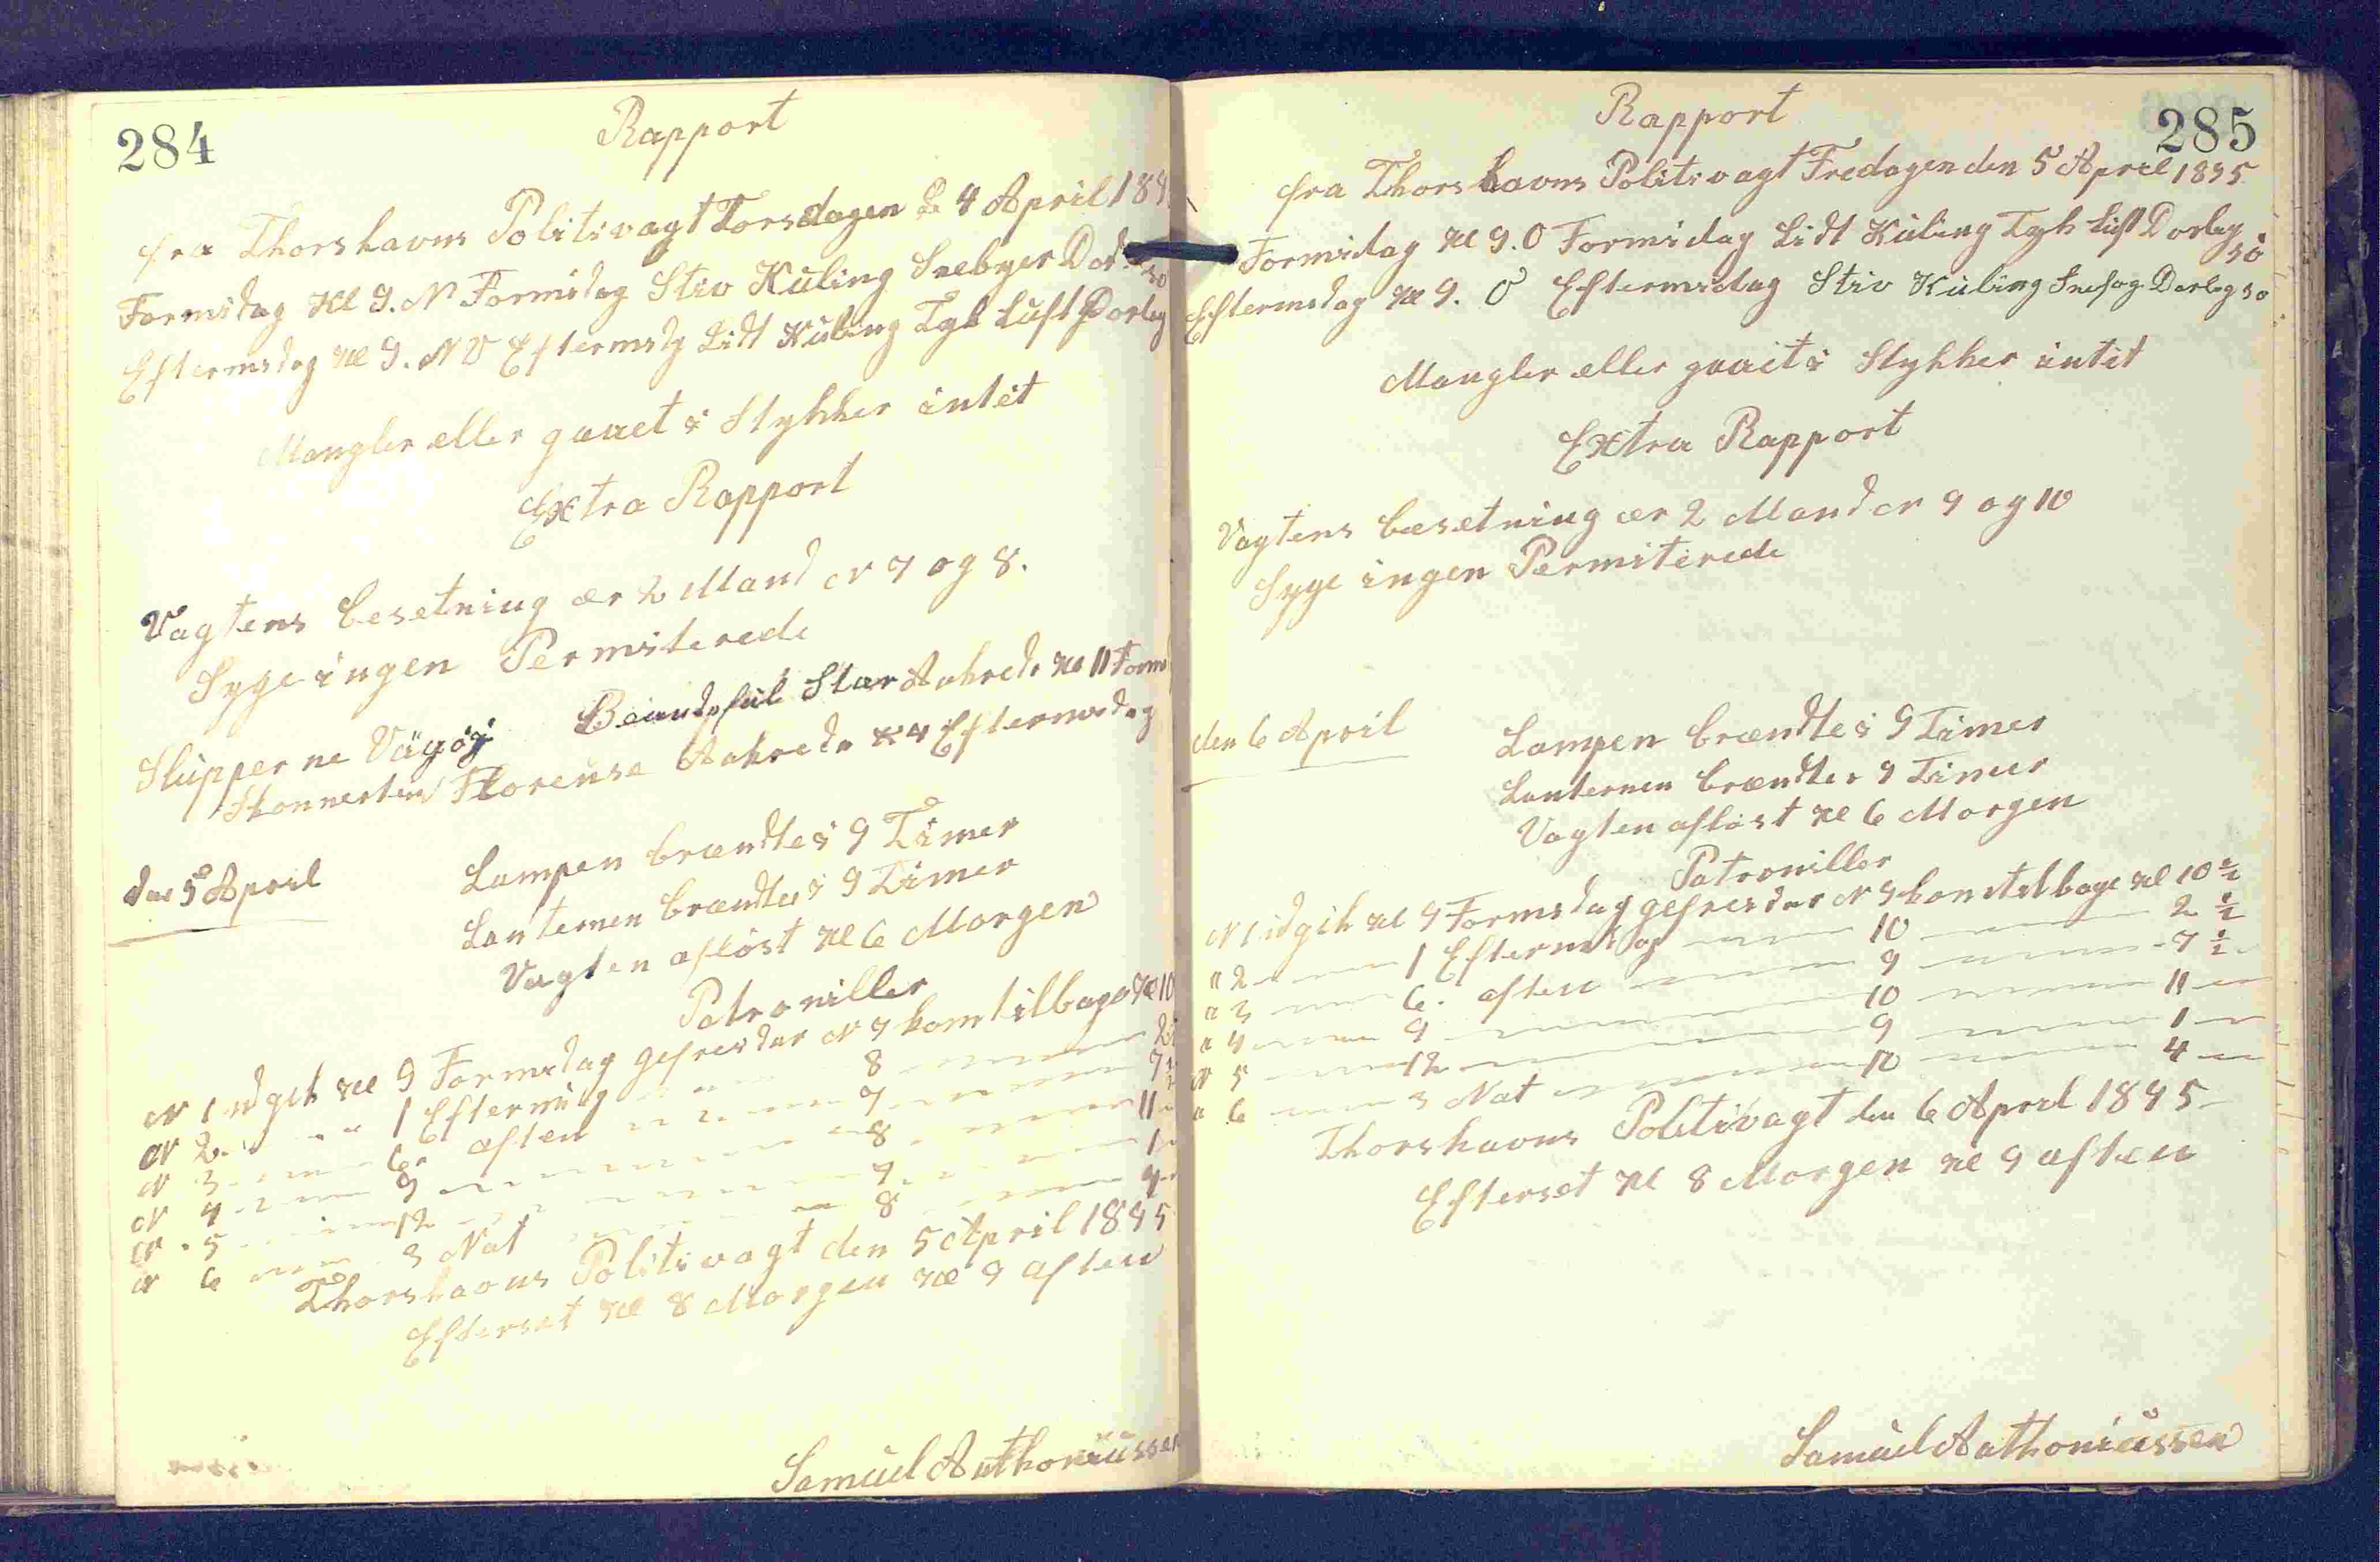 284
Rapport
fra Thorshavns Politivagt Torsdagen d 4 April 189
Formidag Kl 9. N Formidag Stiv Kuling Snebyer
Eftermidag Kl 9. NV Eftermidg Lidt Kuling Tyk Luft Dorleg 30
Mangler eller gaaet i Stykker intet
Extra Rapport
Vagtens besetning ær 2 Mand N 7 og 8.
Syge ingen Permiterede
Slupperne Vägöj Beautyfül Star Ankrede Kl 11 Form
Skonnerten Florense Ankrede Kl 4 Eftermidag
den 5 April
Lampen brændte i 9 Timer
Lanternen brændte i 9 Timer
Vagten afløst Kl 6 Morgen
Patroniller
N 1 udgik Kl 9 Formidag gefreidar N 7 kom tilbage Kl 10
N 2. " " 1 Eftermidg 8 2
N 3 6 aften 7 7½
N 4 9 8 11
N 5 12 7 1
N 6 3 Nat 8 4
Thorshavns Politivagt den 5 April 1895
Efterset Kl 8 Morgen Kl 9 aften
Samuel Anthoniussen
285
Rapport
fra Thorshavns Politivagt Fredagen den 5 April 1895
Formidag Kl 9. O Formidag Lidt Kuling Tyk Luft Dorleg 30
Eftermidag Kl 9. O Eftermidag Stiv Kuling Snefog Dorleg 30
Mangler eller gaaet i Stykker intet
Extra Rapport
Vagtens besetning ær 2 Mand N 9 og 10
Syge ingen Permiterede
den 6 April
Lampen brændte i 9 Timer
Lanternen brændte i 9 Timer
Vagten afløst Kl 6 Morgen
Patroniller
N 1 udgik Kl 9 Formidag gefreidar N 9 kom tilbage Kl 10½
" 2 1 Eftermidag 10 2½
" 3 6. aften 9 7½
" 4 9 10 11
N 5 12 9 1
" 6 3 Nat 10 4
Thorshavns Politivagt den 6 April 1895
Efterset Kl 8 Morgen Kl 9 aften
Samuel Anthoniussen